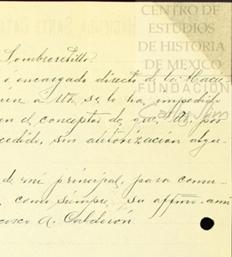 CENTRO DE
ESTUDIOS
DE HISTORIA
DE MEXICO
FUNDACIÓN
Sombreretillo
encargado directo de la Hacie
a Ud. se le ha impedido
en el concepto de que, Ud. por
cedido, sin autorización algu-
de mi principal, para comu-
como siempre, su affmo. ami
cisco A. Calderón.